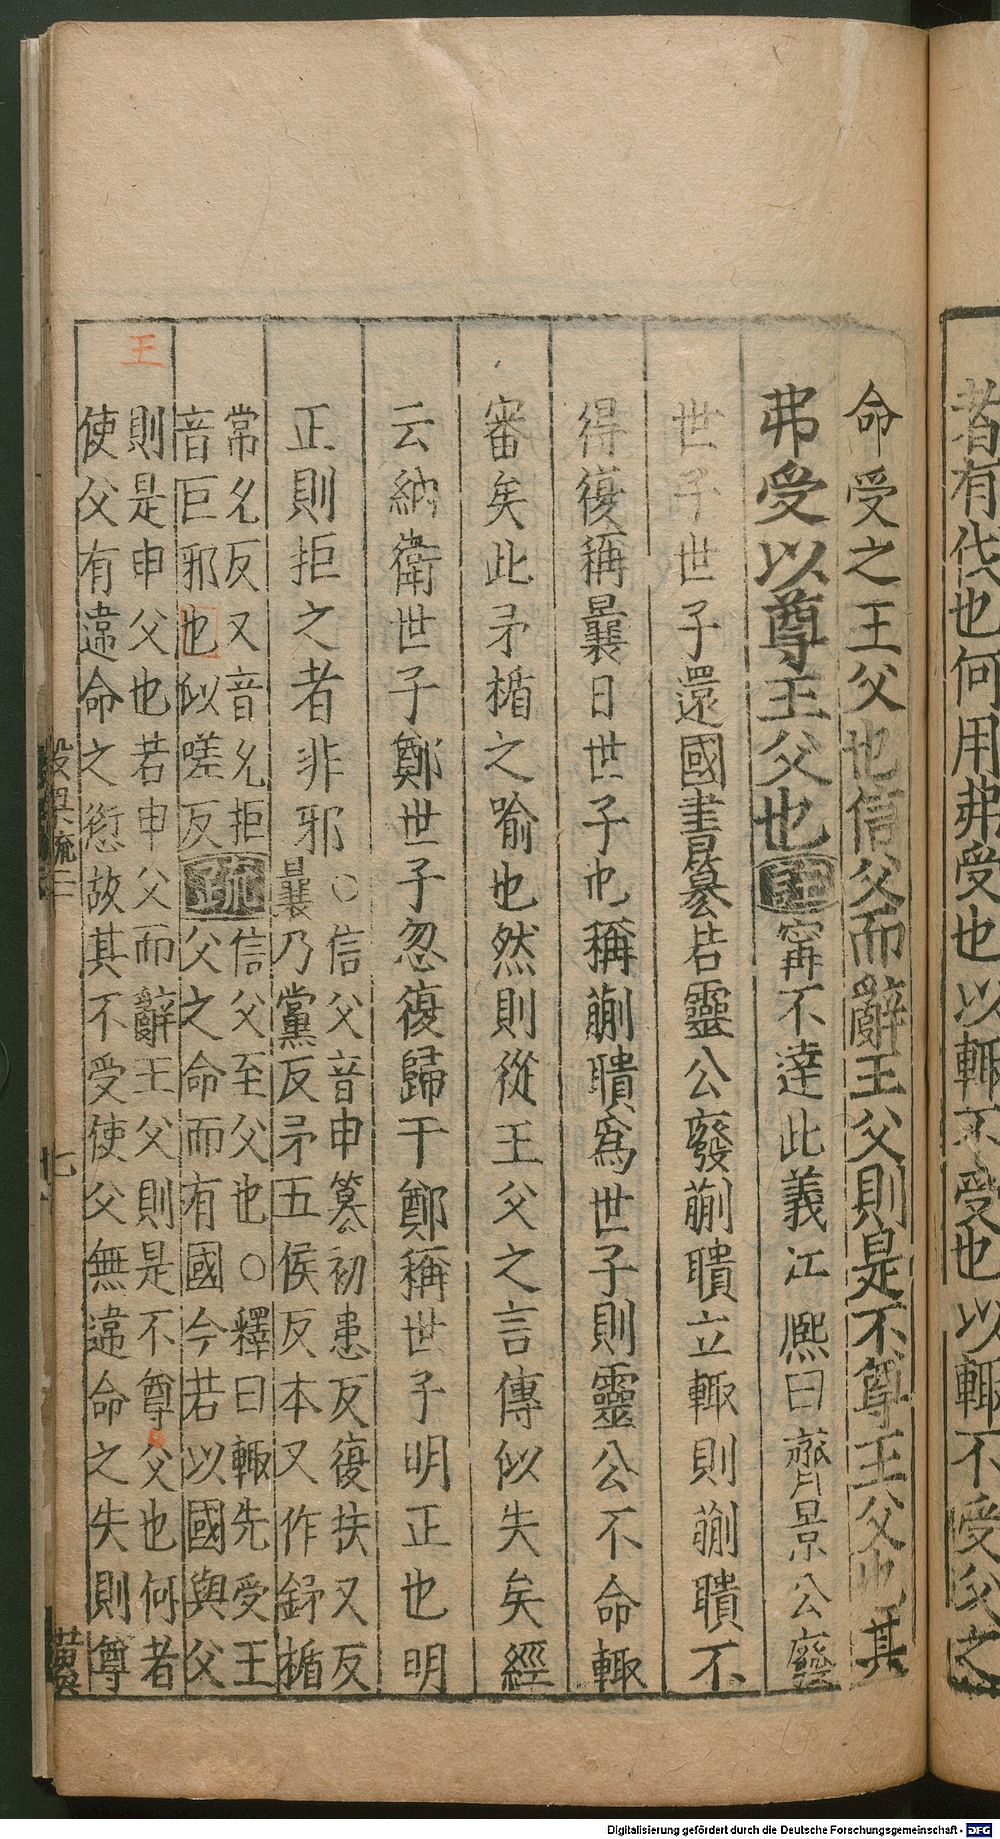 者有伐也何用弗受也以輒不受也以輒不受父之
命受之王父也信父而辭王父則是不尊王父也其
弗受以尊王父也註甯不達此義江熙曰齊景公廢
世子世子還國書篡若靈公廢蒯聵立輒則蒯聵不
得復稱曩日世子也稱蒯聵爲世子則靈公不命輒
審矣此矛楯之喻也然則從王父之言傳似失矣經
云納衛世子鄭世子忽復歸于鄭稱世子明正也明
正則拒之者非邪
○信父音申篡初患反復扶又反
曩乃黨反矛五侯反本又作鉾楯
常允反又音允拒
音巨邪也似嗟反
疏
信父至父也○釋曰輒先受王
父之命而有國今若以國與父
則是申父也若申父而辭王父則是不尊父也何者
使父有違命之愆故其不受使父無違命之失則尊
王
穀梁疏二
七
黃
Digitalisierung gefördert durch die Deutsche Forschungsgemeinschaft - DFG